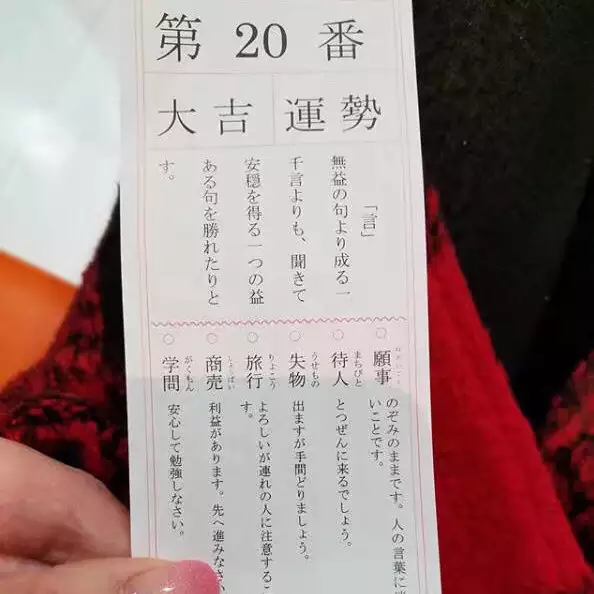 第 20 番
運勢 大吉
「言」
無益の句より成る一
千言よりも、聞きて
安穏を得る一つの益
ある句を勝れたりと
す。
○ 願事 ねがいごと
のぞみのままです。人の言葉に
いことです。
○ 待人 まちびと
とつぜんに来るでしょう。
○ 失物 うせもの
出ますが手間どりましょう。
○ 旅行 りょこう
よろしいが連れの人に注意するこ
す。
○ 商売 しょうばい
利益があります。先へ進みなさい
○ 学問 がくもん
安心して勉強しなさい。